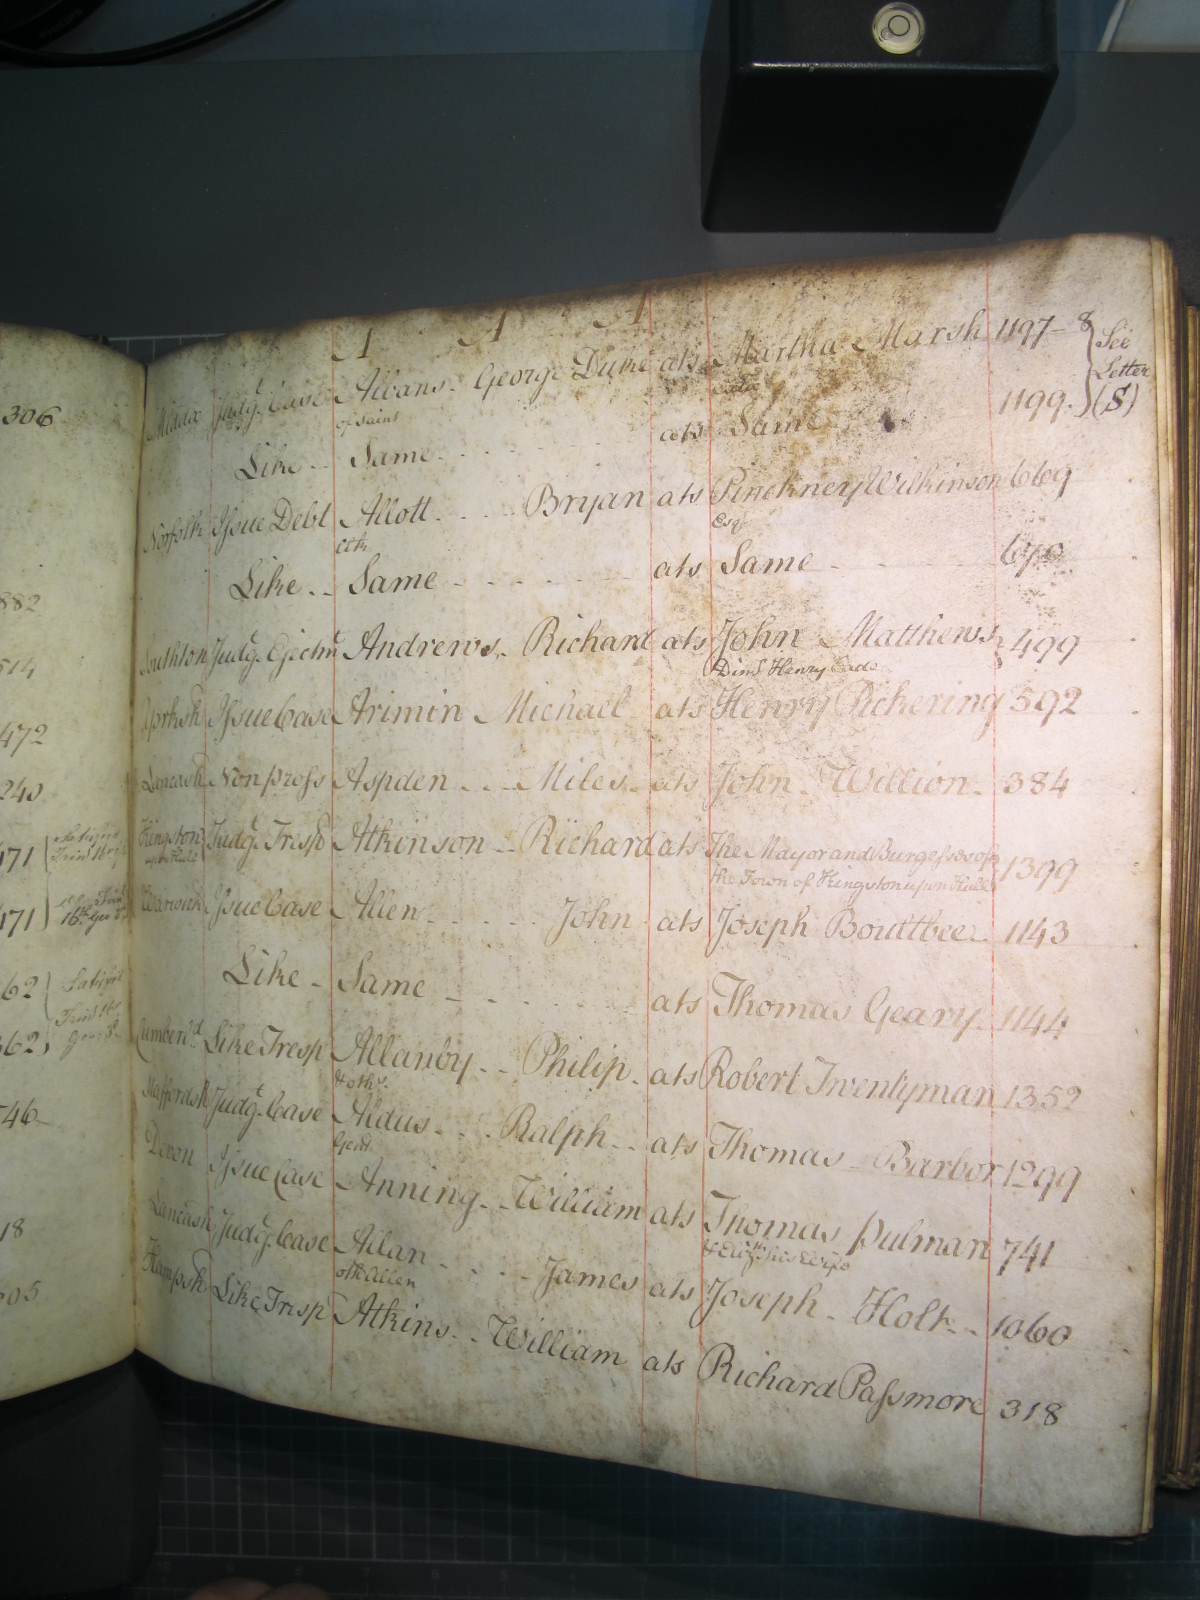 A A A
Middx Judgt. Case Albans. George Duke ats Martha Marsh 1197-8 } See
of Saint Letter
Like Same ats Same 1199. (S)
Norfolk Issue Debt Allott Bryan ats Pinckney Wilkinson 669
Clk Esqr
Like Same ats Same 670
Southton Judgt. Ejectmt Andrews Richard ats John Matthews 499
Dimd Henry Eade
Yorksh Issue Case Arimin Michael ats Henry Pickering 592
Lancash Non pross Aspden Miles ats John Willion 384
Kingston upon Hull Judgt. Tresp Atkinson Richard ats The Mayor and Burgesses of 1399
the Town of Kingston upon Hull
Warwick Issue Case Allen John ats Joseph Boultbee 1143
Like Same ats Thomas Geary 1144
Cumberld Like Tresp Allanby Philip ats Robert Twentyman 1352
& othrs
Staffordsh Judgt. Case Aldus Ralph ats Thomas Barbor 1299
Gent
Devon Issue Case Anning William ats Thomas Pulman 741
& Elizth his Wife
Lancash Judgt. Case Allan James ats Joseph Holt 1060
oth Allen
Hampsh Like Tresp Atkins William ats Richard Passmore 318
306
882
514
472
240
171
171 16th Geo 3d
62
362
746
18
205